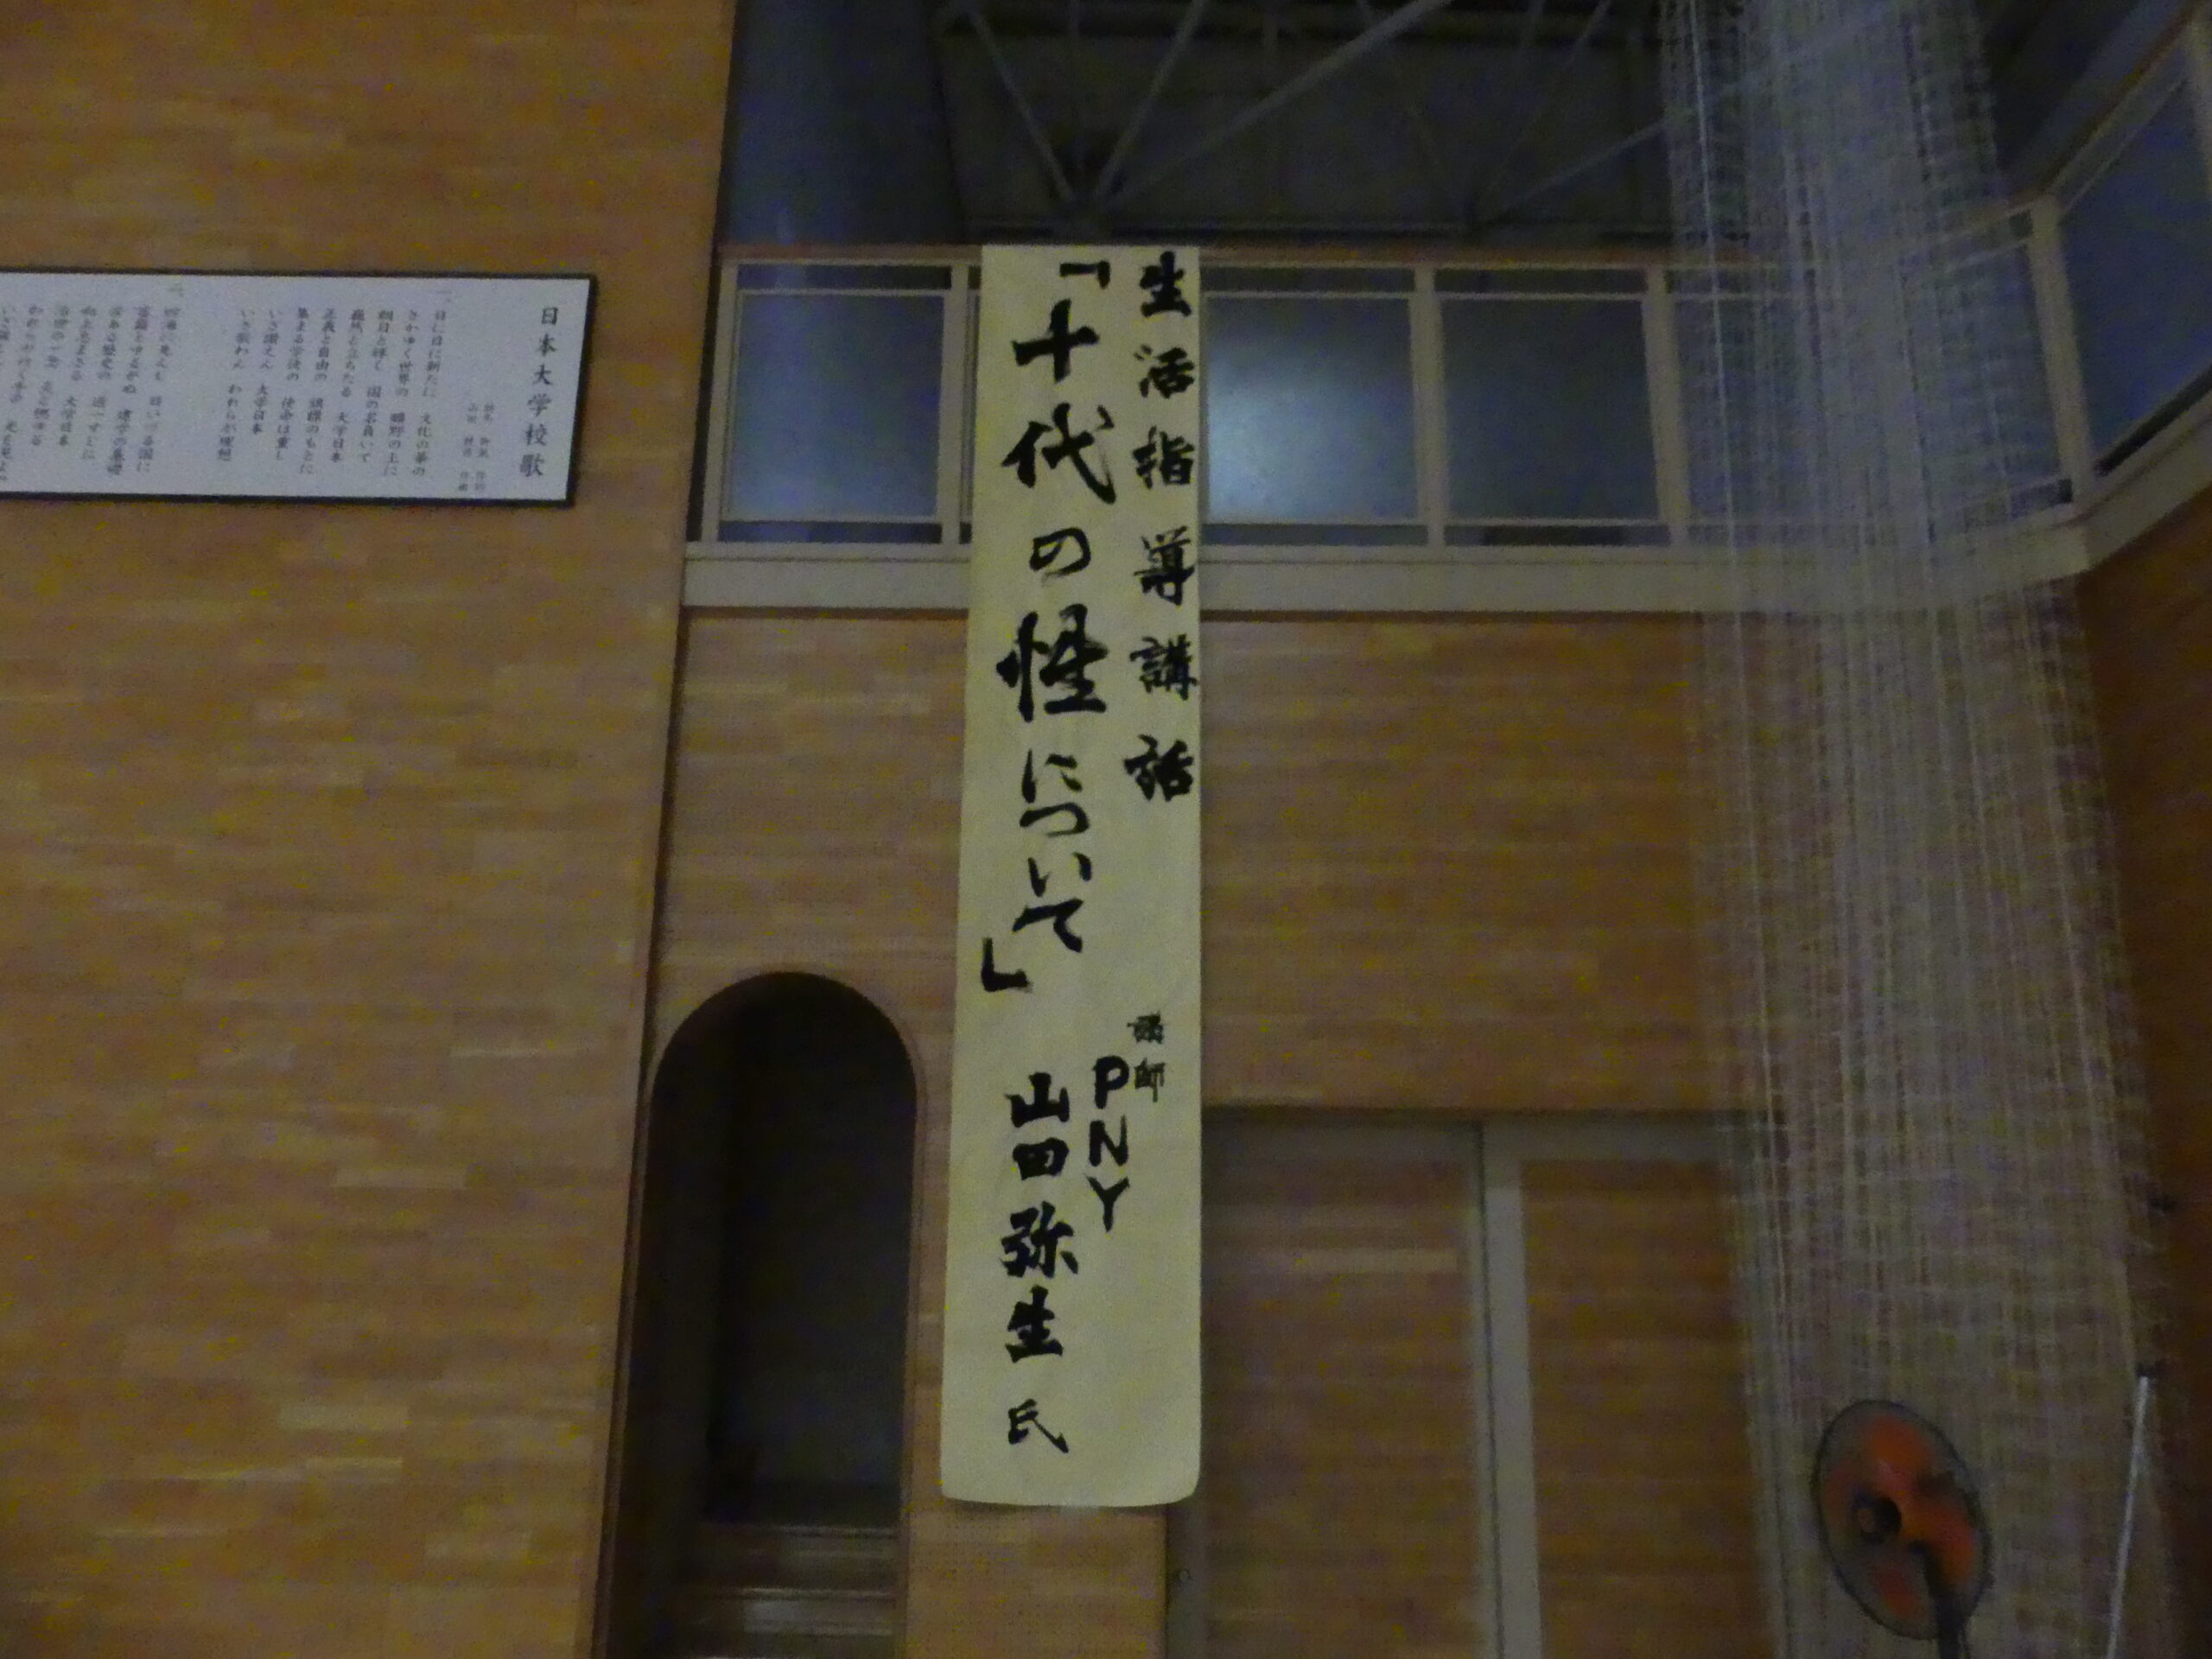 生活指導講話
「十代の性について」
講師
PNY
山田弥生 氏
日本大学校歌
一、
日に日に新たに 文化の華の
さかゆく世界の 曠野の上に
朝日と輝く 国の名負いて
巍然と立ちたる 大学日本
正義と自由の 旗標のもとに
集まる学徒の 使命は重し
いざ讃えん 大学日本
いざ歌わん われらが理想